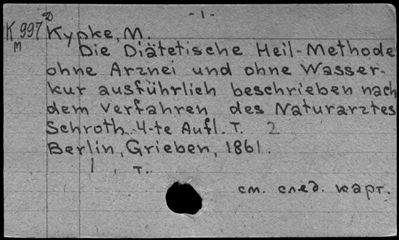 - 1 -
K 997
M
Kypke, M.
Die Diätetische Heil-Methode
ohne Arznei und ohne Wasser-
kur ausführlich beschrieben nach
dem verfahren des Naturarztes
Schroth. 4-te Aufl. T. 2
Berlin, Grieben, 1861.
1, T.
см. след. карт.